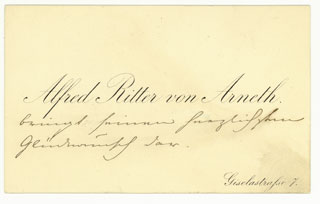 Alfred Ritter von Arneth.
bringt seinen herzlichsten
Glückwunsch dar.
Giselastraße 7.